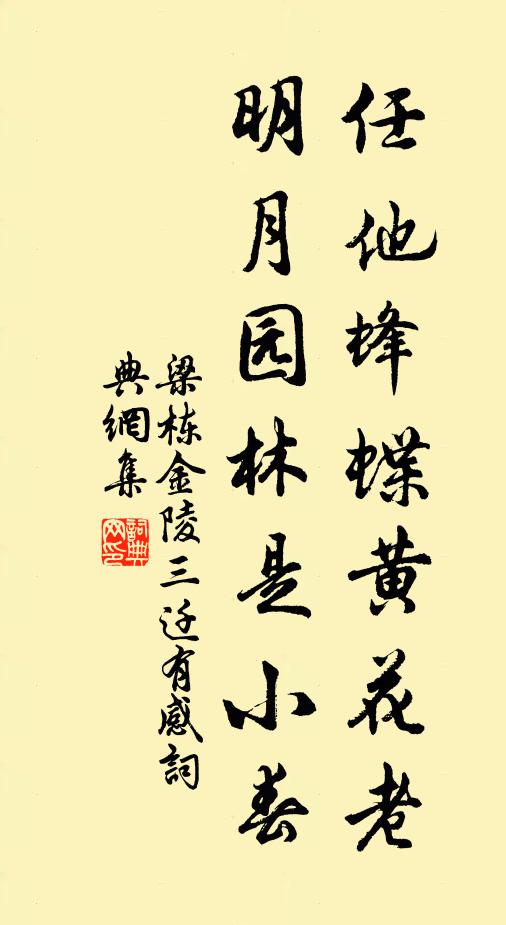 任他蜂蝶黄花老
明月园林是小春
梁栋金陵三迁有感詞
典網集
詞典网印